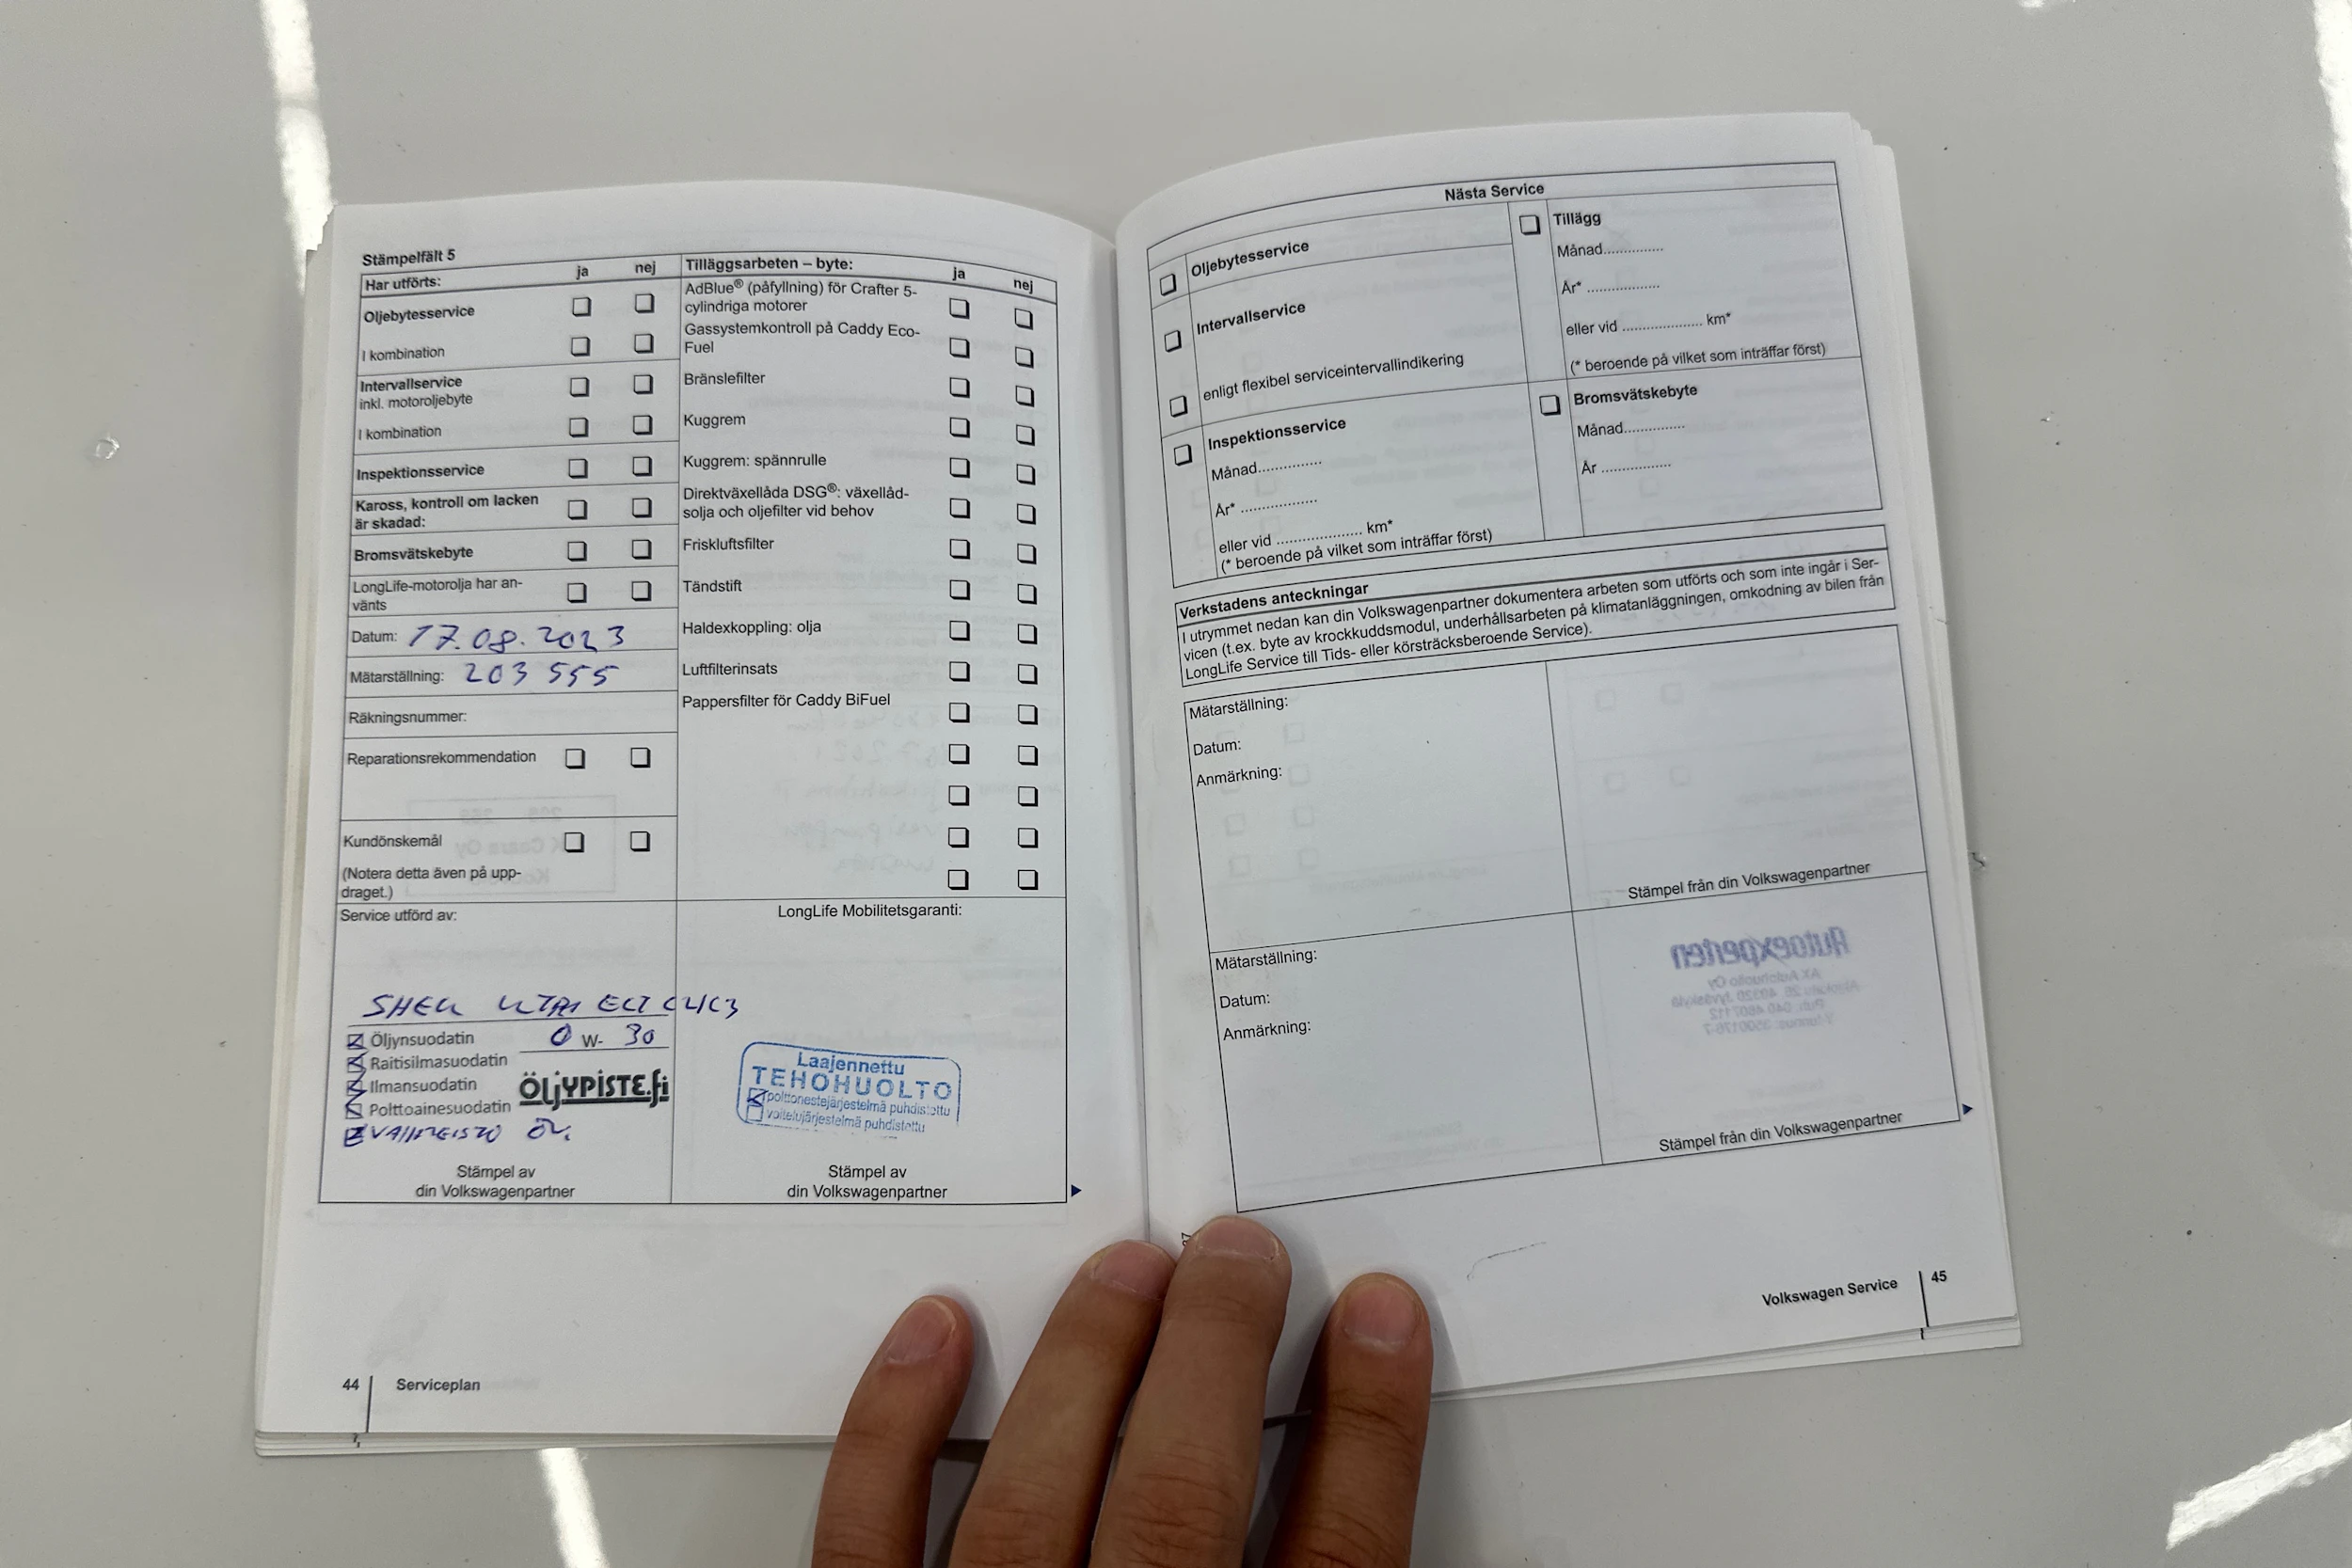 Stämpelfält 5
Har utförts: ja nej
Oljebytesservice
I kombination
Intervallservice
inkl. motoroljebyte
I kombination
Inspektionsservice
Kaross, kontroll om lacken
är skadad:
Bromsvätskebyte
LongLife-motorolja har an-
vänts
Datum: 17.08.2023
Mätarställning: 203 555
Räkningsnummer:
Reparationsrekommendation
Kundönskemål
(Notera detta även på upp-
draget.)
Tilläggsarbeten – byte: ja nej
AdBlue® (påfyllning) för Crafter 5-
cylindriga motorer
Gassystemkontroll på Caddy Eco-
Fuel
Bränslefilter
Kuggrem
Kuggrem: spännrulle
Direktväxellåda DSG®: växellåd-
solja och oljefilter vid behov
Friskluftsfilter
Tändstift
Haldexkoppling: olja
Luftfilterinsats
Pappersfilter för Caddy BiFuel
Service utförd av:
SHELL ECT C2/C3
Öljynsuodatin 0 W- 30
Raitisilmasuodatin
Ilmansuodatin
Polttoainesuodatin
ÖLJYPISTE.fi
Stämpel av
din Volkswagenpartner
LongLife Mobilitetsgaranti:
Laajennettu
TEHOHUOLTO
polttonestejärjestelmä puhdistettu
voitelujärjestelmä puhdistettu
Stämpel av
din Volkswagenpartner
44 Serviceplan
Nästa Service
Oljebytesservice
Intervallservice
enligt flexibel serviceintervallindikering
Inspektionsservice
Månad..............
År* .................
eller vid .................... km*
(* beroende på vilket som inträffar först)
Tillägg
Månad..............
År* .................
eller vid .................... km*
(* beroende på vilket som inträffar först)
Bromsvätskebyte
Månad..............
År .................
Verkstadens anteckningar
I utrymmet nedan kan din Volkswagenpartner dokumentera arbeten som utförts och som inte ingår i Ser-
vicen (t.ex. byte av krockkuddsmodul, underhållsarbeten på klimatanläggningen, omkodning av bilen från
LongLife Service till Tids- eller körsträcksberoende Service).
Mätarställning:
Datum:
Anmärkning:
Stämpel från din Volkswagenpartner
Mätarställning:
Datum:
Anmärkning:
Stämpel från din Volkswagenpartner
Volkswagen Service 45